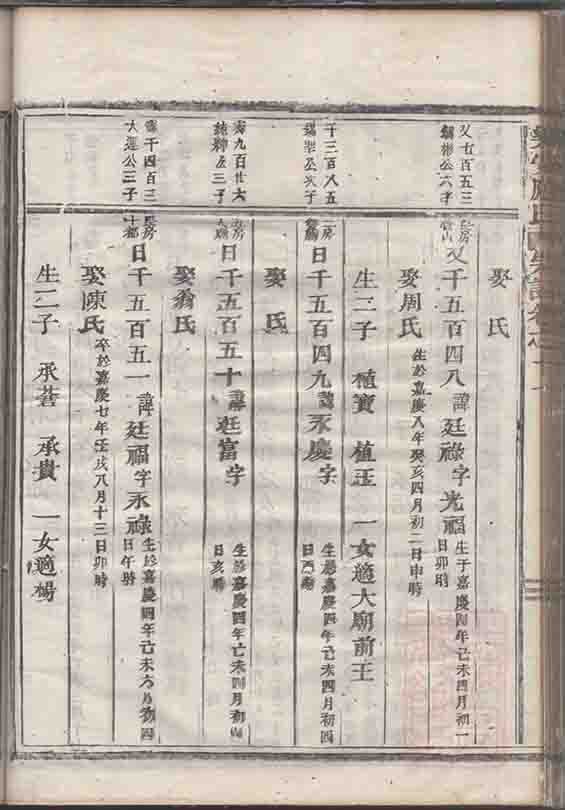 娶 氏
又七百五三
公六子
又千五百四八 諱廷祿字光福 生于嘉慶四年己未四月初一
日卯時
娶周氏 生於嘉慶八年癸亥四月初二日申時
生二子 植寶 植玉 一女適大廟前王
千三百八五
公次子
日千五百四九 諱永慶字 生於嘉慶四年己未四月初四
日酉時
娶 氏
九百廿六
公三子
日千五百五十 諱廷富字 生於嘉慶四年己未四月初
日亥時
娶翁氏
千四百三
大運公三子
日千五百五一 諱廷福字永祿 生於嘉慶四年己未六月初四
日午時
娶陳氏 卒於嘉慶七年壬戌八月十三日卯時
生二子 承蒼 承貴 一女適楊